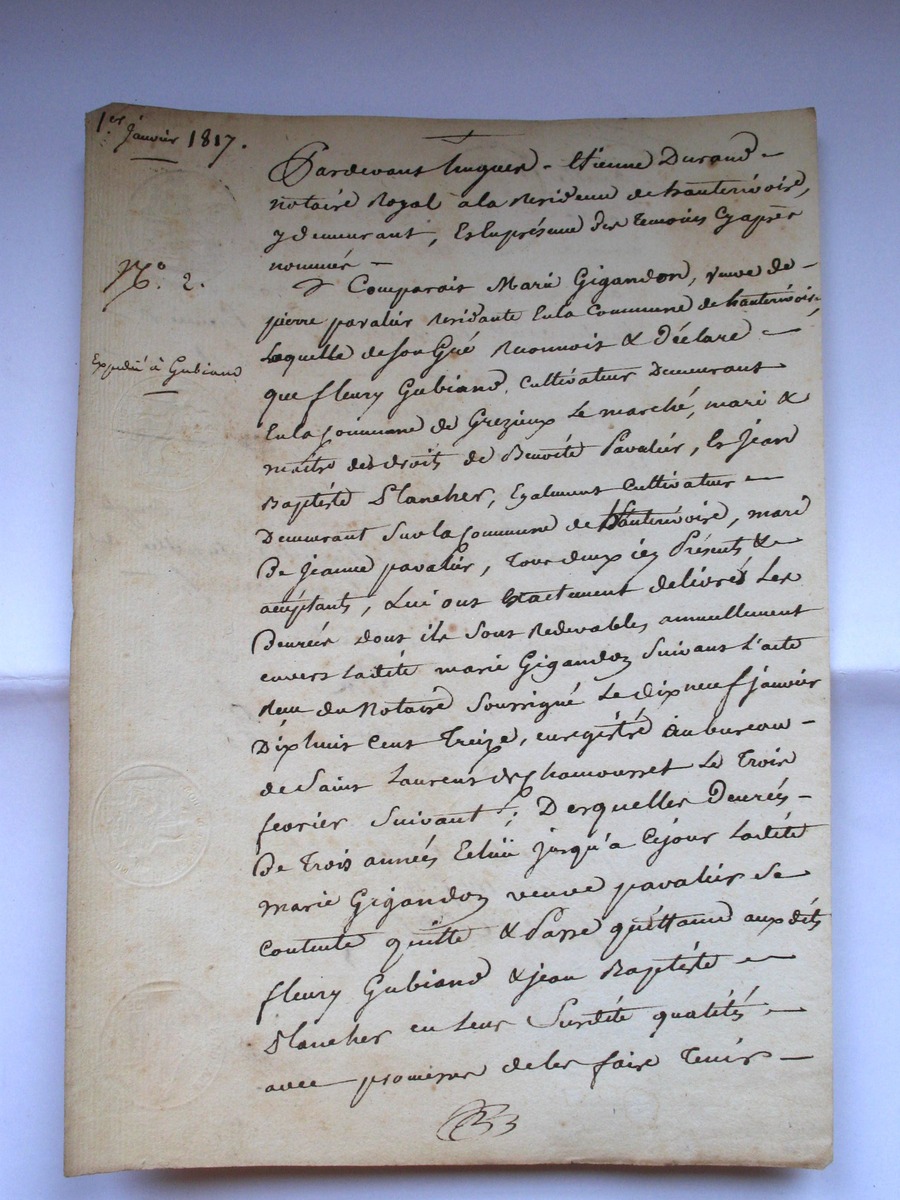 1er janvier 1817.
Pardevant hugues - Etienne Durand -
notaire Royal a la Residence de hauterivoire,
y demeurant, Et En présence des temoins Cy après
nommés -
No. 2.
Comparois Marie Gigandon, veuve de -
pierre pavalier Residante En la Commune de hauterivoire
Expedié à Gubiand
Laquelle de son Gré Reconnois & Déclare -
que fleury Gubiand, Cultivateur Demeurant
En la Commune de Grezieux Le marché, mari &
maitre des droits de Benoite Pavalier, Et Jean
Baptiste Plancher, Egalement Cultivateur -
Demeurant Sur la Commune de hauterivoire, mari
De Jeanne pavalier, tous deux icy Présents &
acceptants, Lui ont Exactement delivrés Les
Denrées dont ils Sont Redevables annuellement
envers Ladite marie Gigandon Suivant L'acte
Recu du Notaire Soussigné Le dix neuf janvier
Dix huit Cent Treize, enregistré au bureau -
de Saint Laurent de Chamousset Le Trois
fevrier Suivant; Desquelles Denrées -
De Trois années Echue jusqu'à Cejour Ladite
Marie Gigandon veuve pavalier Se
Contente quitte & Passe quittance aux dits
fleury Gubiand & jean Baptiste -
Plancher en Leur Susdite qualités -
avec promesse de les faire Tenir -